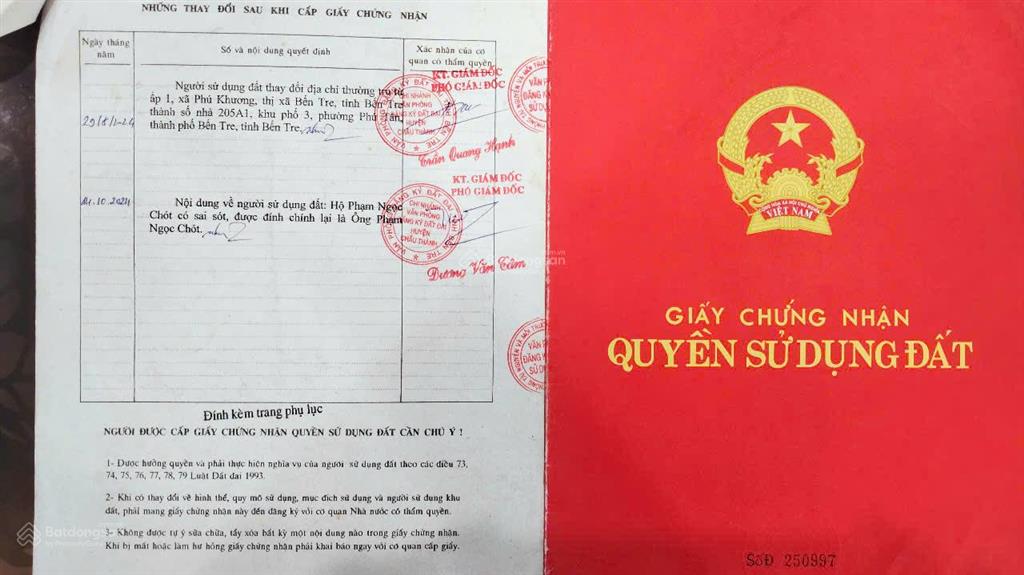 NHỮNG THAY ĐỔI SAU KHI CẤP GIẤY CHỨNG NHẬN
Ngày tháng năm
Số và nội dung quyết định
Xác nhận của cơ quan có thẩm quyền
Người sử dụng đất thay đổi địa chỉ thường trú từ
ấp 1, xã Phú Khương, thị xã Bến Tre, tỉnh Bến Tre
thành số nhà 205A1, khu phố 3, phường Phú Tân,
thành phố Bến Tre, tỉnh Bến Tre.
KT. GIÁM ĐỐC
PHÓ GIÁM ĐỐC
CHI NHÁNH
VĂN PHÒNG
ĐĂNG KÝ ĐẤT ĐAI
HUYỆN
CHÂU THÀNH
Trần Quang Hạnh
14.10.2024
Nội dung về người sử dụng đất: Hộ Phạm Ngọc
Chót có sai sót, được đính chính lại là Ông Phạm
Ngọc Chót.
KT. GIÁM ĐỐC
PHÓ GIÁM ĐỐC
CHI NHÁNH
VĂN PHÒNG
ĐĂNG KÝ ĐẤT ĐAI
HUYỆN
CHÂU THÀNH
Dương Văn Tâm
Đính kèm trang phụ lục
NGƯỜI ĐƯỢC CẤP GIẤY CHỨNG NHẬN QUYỀN SỬ DỤNG ĐẤT CẦN CHÚ Ý !
1- Được hưởng quyền và phải thực hiện nghĩa vụ của người sử dụng đất theo các điều 73,
74, 75, 76, 77, 78, 79 Luật Đất đai 1993.
2- Khi có thay đổi về hình thể, quy mô sử dụng, mục đích sử dụng và người sử dụng khu
đất, phải mang giấy chứng nhận này đến đăng ký với cơ quan Nhà nước có thẩm quyền.
3- Không được tự ý sửa chữa, tẩy xóa bất kỳ một nội dung nào trong giấy chứng nhận.
Khi bị mất hoặc làm hư hỏng giấy chứng nhận phải khai báo ngay với cơ quan cấp giấy.
Batdongsan
VIỆT NAM
GIẤY CHỨNG NHẬN
QUYỀN SỬ DỤNG ĐẤT
SốĐ 250997